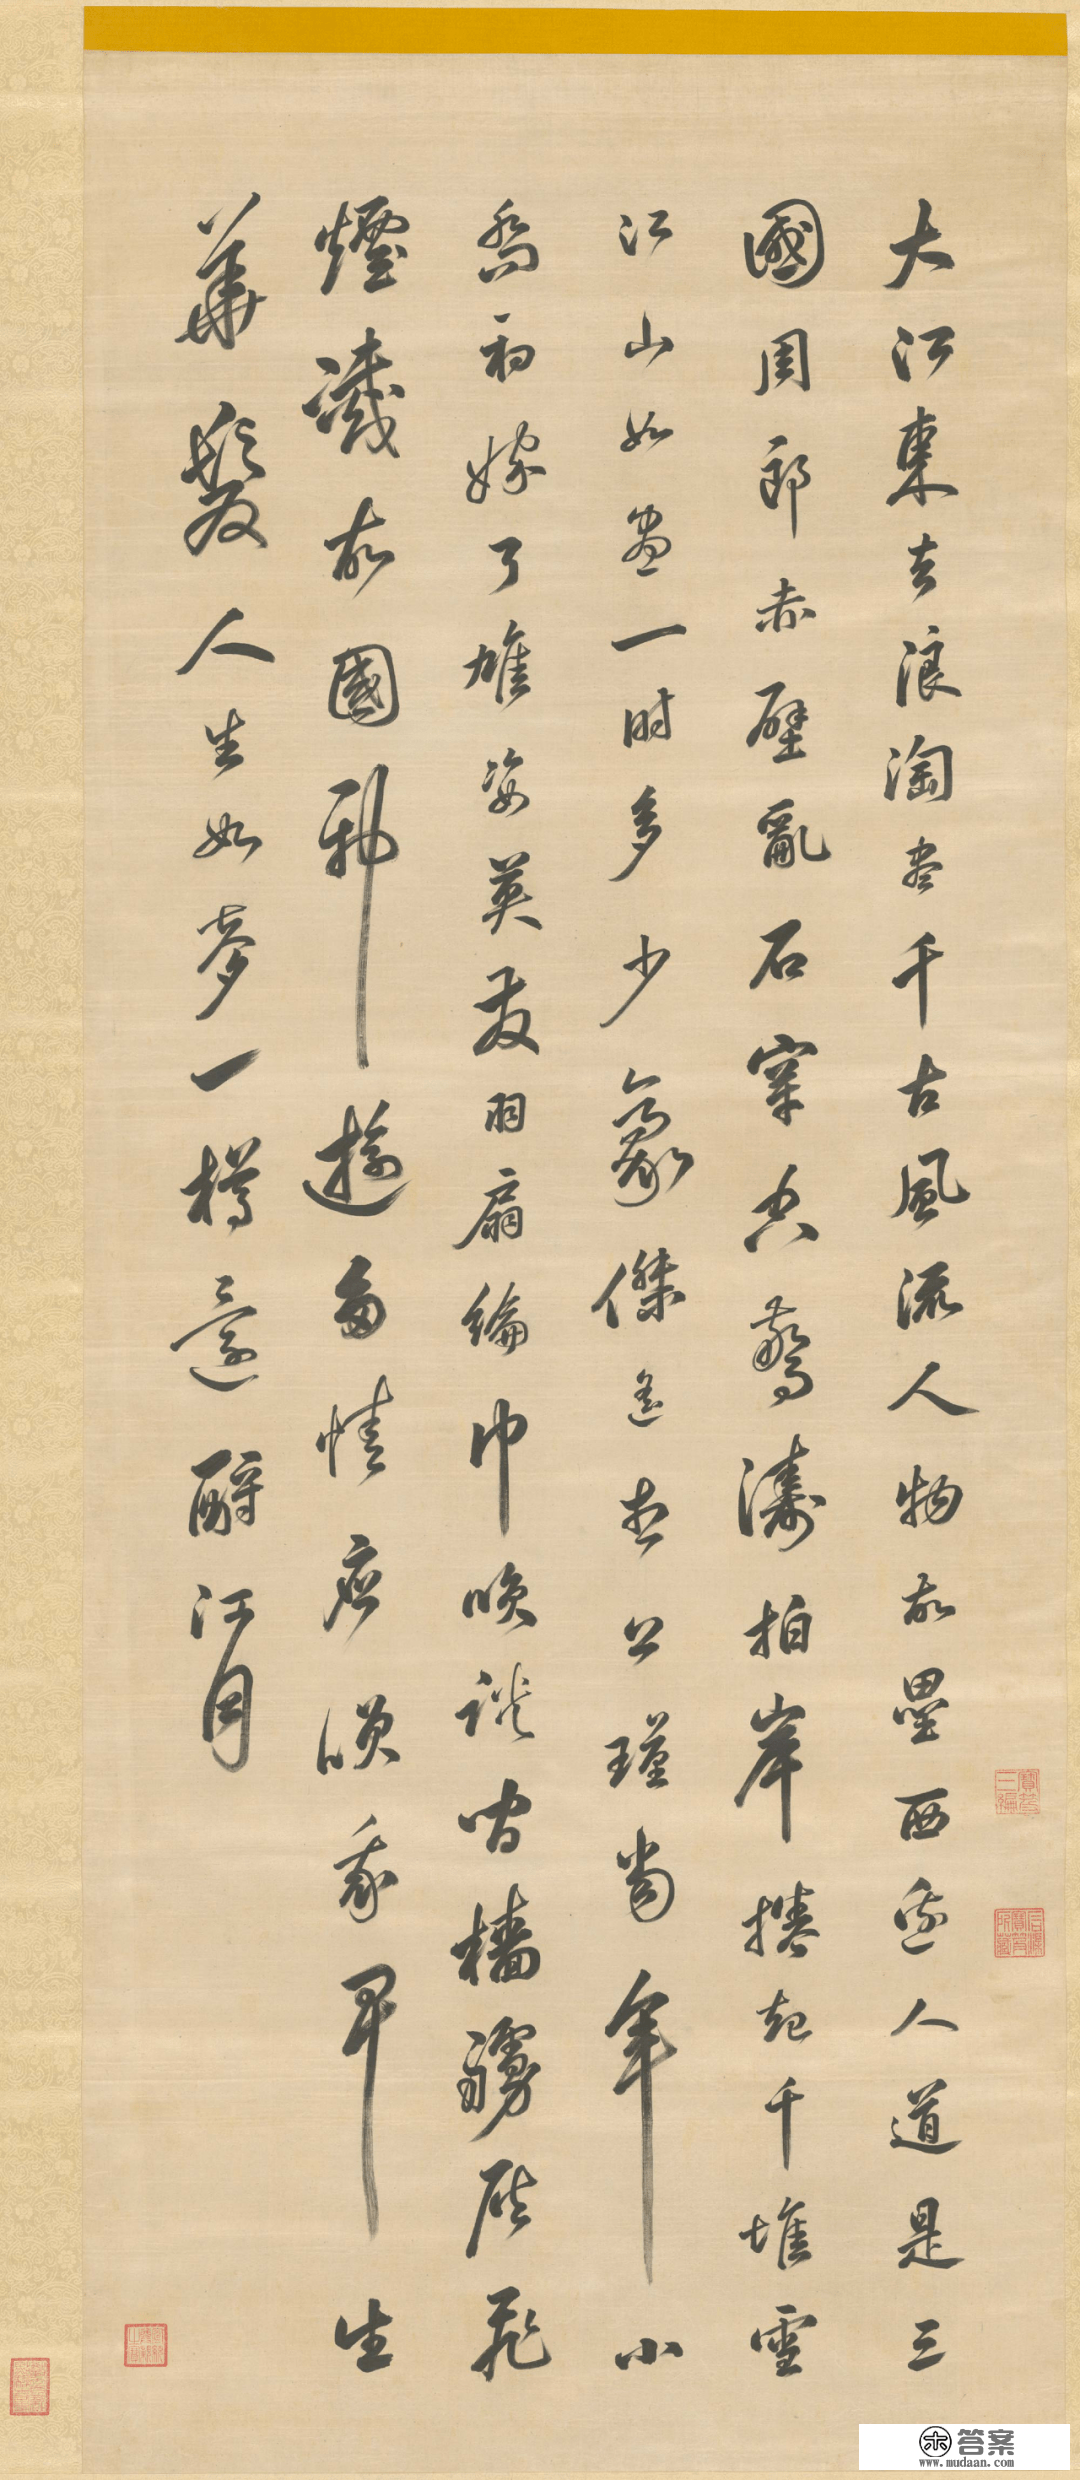 大江東去浪淘盡千古風流人物故壘西邊人道是三
國周郎赤壁亂石穿空驚濤拍岸捲起千堆雪
江山如畫一時多少豪傑遙想公瑾當年小
喬初嫁了雄姿英發羽扇綸巾咲談間檣艣灰飛
煙滅故國神遊多情應咲我早生
華髮人生如夢一樽還酹江月
寶笈三編
石渠寶笈所藏
答案
www.mudaan.com